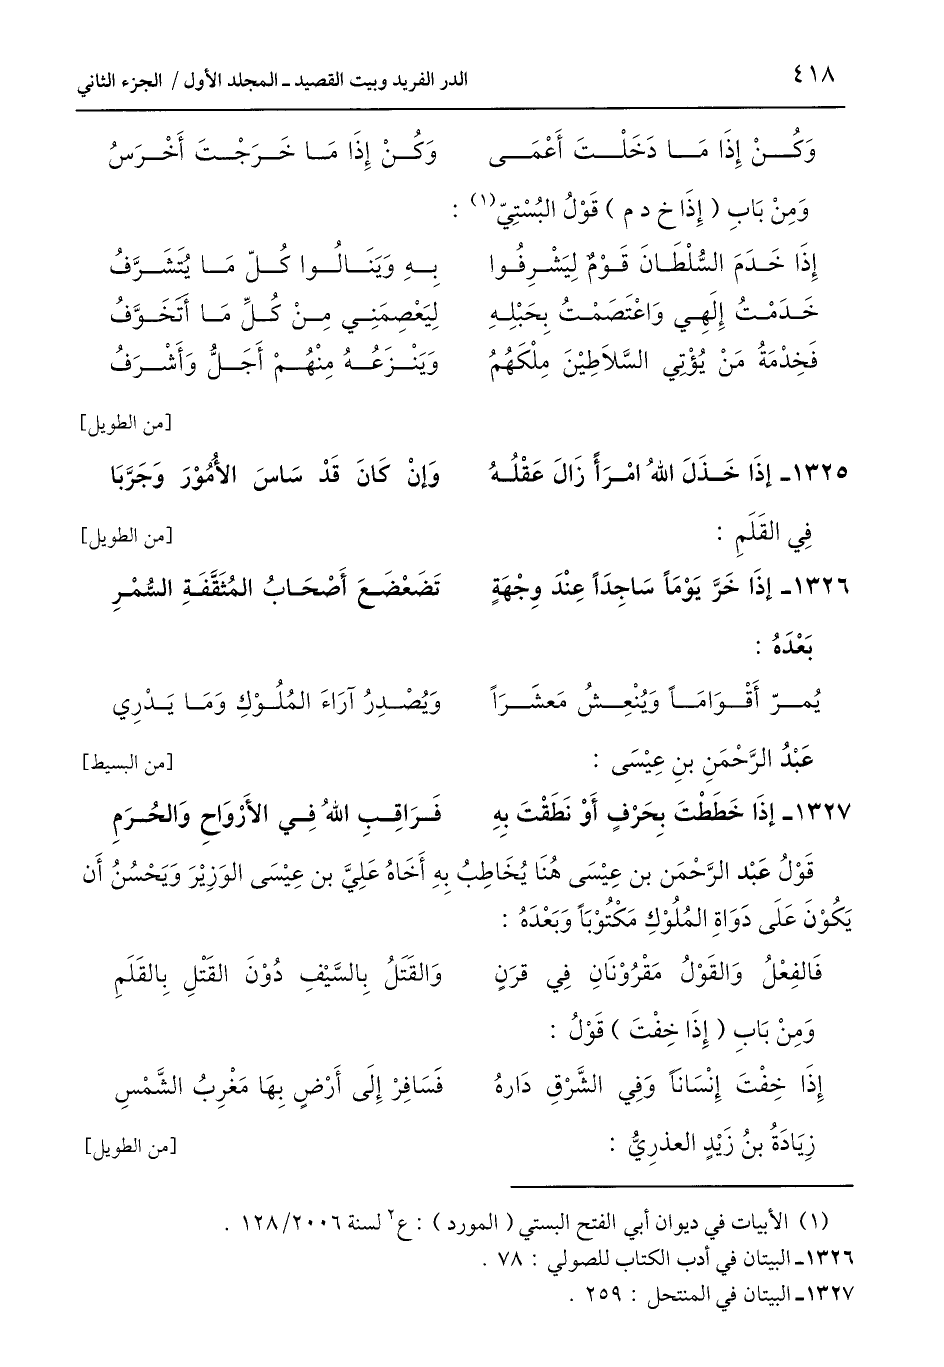 ٤١٨ الدر الفريد وبيت القصيد ـ المجلد الأول / الجزء الثاني
وَكُنْ إِذَا مَا دَخَلْتَ أَعْمَى وَكُنْ إِذَا مَا خَرَجْتَ أَخْرَسُ
وَمِنْ بَابِ ( إِذَا خ د م ) قَوْلُ البُسْتِيّ(١) :
إِذَا خَدَمَ السُّلْطَانَ قَوْمٌ لِيَشْرِفُوا بِهِ وَيَنَالُوا كُلّ مَا يُتَشَرَّفُ
خَدَمْتُ إِلَهِي وَاعْتَصَمْتُ بِحَبْلِهِ لِيَعْصِمَنِي مِنْ كُلِّ مَا أَتَخَوَّفُ
فَخِدْمَةُ مَنْ يُؤْتِي السَّلاَطِيْنَ مِلْكَهُمُ وَيَنْزعُهُ مِنْهُمْ أَجَلُّ وَأَشْرَفُ
[من الطويل]
١٣٢٥ـ إِذَا خَذَلَ اللهُ امْرَأً زَالَ عَقْلُهُ وَإِنْ كَانَ قَدْ سَاسَ الأُمُوْرَ وَجَرَّبَا
فِي القَلَمِ : [من الطويل]
١٣٢٦ـ إِذَا خَرَّ يَوْمَاً سَاجِدَاً عِنْدَ وِجْهَةٍ تَضَعْضَعَ أَصْحَابُ المُثَقَّفَةِ السُّمْرِ
بَعْدَهُ :
يُمرّ أَقْوَامَاً وَيُنْعِشُ مَعشَرَاً وَيُصْدِرُ آرَاءَ المُلُوْكِ وَمَا يَدْرِي
عَبْدُ الرَّحْمَنِ بنِ عِيْسَى : [من البسيط]
١٣٢٧ـ إِذَا خَطَطْتَ بِحَرْفٍ أَوْ نَطَقْتَ بِهِ فَرَاقِبِ اللهُ فِي الأَرْوَاحِ وَالحُرَمِ
قَوْلُ عَبْد الرَّحْمَن بن عِيْسَى هُنَا يُخَاطِبُ بِهِ أَخَاهُ عَلِيَّ بن عِيْسَى الوَزِيْرَ وَيَحْسُنُ أن
يَكُوْنَ عَلَى دَوَاةِ المُلُوْكِ مَكْتُوْبَاً وَبَعْدَهُ :
فَالفِعْلُ وَالقَوْلُ مَقْرُوْنَانِ فِي قرَنٍ وَالقَتَلُ بِالسَّيْفِ دُوْنَ القَتْلِ بِالقَلَمِ
وَمِنْ بَابِ ( إِذَا خِفْتَ ) قَوْلُ :
إِذَا خِفْتَ إِنْسَانَاً وَفِي الشَّرْقِ دَارهُ فَسَافِرْ إِلَى أَرْضٍ بِهَا مَغْرِبُ الشَّمْسِ
زِيَادَةُ بنُ زَيْدٍ العذرِيُّ : [من الطويل]
(١) الأبيات في ديوان أبي الفتح البستي ( المورد ) : ع٢ لسنة ٢٠٠٦/١٢٨ .
١٣٢٦ـ البيتان في أدب الكتاب للصولي : ٧٨ .
١٣٢٧ـ البيتان في المنتحل : ٢٥٩ .